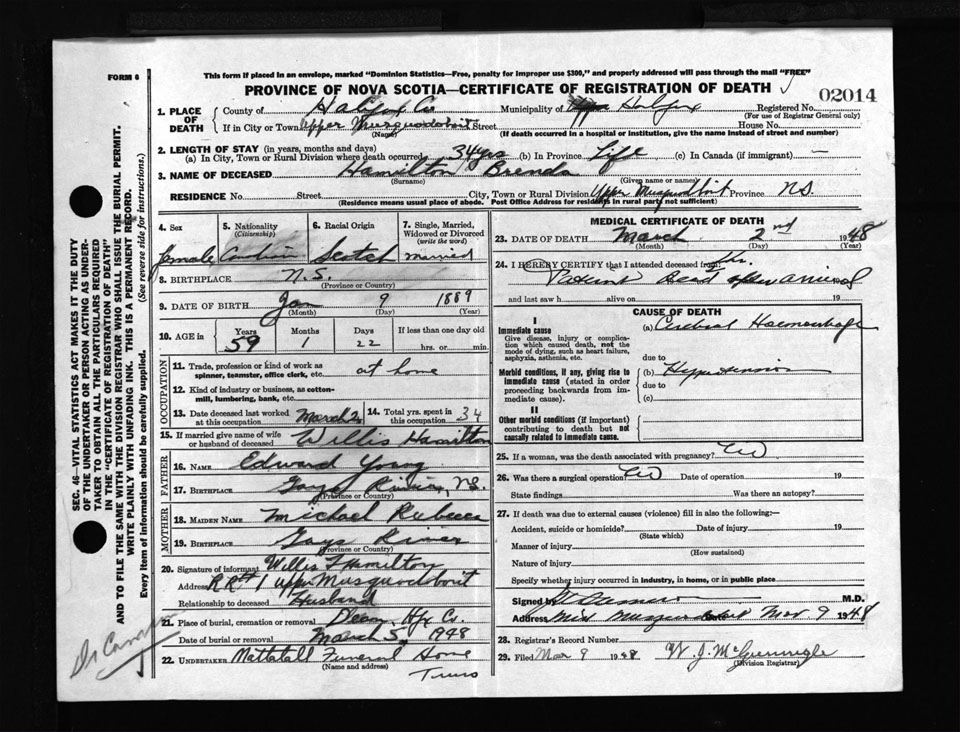 FORM 6
This form if placed in an envelope, marked "Dominion Statistics—Free, penalty for improper use $300," and properly addressed will pass through the mail "FREE"
PROVINCE OF NOVA SCOTIA—CERTIFICATE OF REGISTRATION OF DEATH
02014
1. PLACE OF DEATH
County of Halifax Co Municipality of Halifax Registered No.
(For use of Registrar General only)
If in City or Town Upper Musquodoboit Street House No.
(Name) (If death occurred in a hospital or institution, give the name instead of street and number)
2. LENGTH OF STAY (in years, months and days)
(a) In City, Town or Rural Division where death occurred 34 yrs (b) In Province Life (c) In Canada (if immigrant) —
3. NAME OF DECEASED Hamilton Brenda
(Surname) (Given name or names)
RESIDENCE No. Street City, Town or Rural Division Upper Musquodoboit Province N.S.
(Residence means usual place of abode. Post Office Address for residents in rural parts not sufficient)
4. Sex
female
5. Nationality
(Citizenship)
Canadian
6. Racial Origin
Scotch
7. Single, Married, Widowed or Divorced
(write the word)
married
8. BIRTHPLACE N.S.
(Province or Country)
9. DATE OF BIRTH Jan 9 1889
(Month) (Day) (Year)
10. AGE in Years Months Days If less than one day old
59 1 22 hrs. or min.
OCCUPATION
11. Trade, profession or kind of work as
spinner, teamster, office clerk, etc. at home
12. Kind of industry or business, as cotton-
mill, lumbering, bank, etc.
13. Date deceased last worked at this occupation March 2
14. Total yrs. spent in this occupation 34
15. If married give name of wife
or husband of deceased Willis Hamilton
FATHER
16. NAME Edward Young
17. BIRTHPLACE Gays River, N.S.
(Province or Country)
MOTHER
18. MAIDEN NAME Michael Rebecca
19. BIRTHPLACE Gays River
(Province or Country)
20. Signature of informant Willis F Hamilton
Address RR# 1 Upper Musquodoboit
Relationship to deceased Husband
21. Place of burial, cremation or removal Dean, Hfx Co.
Date of burial or removal March 5, 1948
22. UNDERTAKER Mattatall Funeral Home
(Name and address)
Truro
MEDICAL CERTIFICATE OF DEATH
23. DATE OF DEATH March 2nd 1948
(Month) (Day) (Year)
24. I HEREBY CERTIFY that I attended deceased from
Patient Dead upon arrival
and last saw h alive on 19
CAUSE OF DEATH
I
Immediate cause (a) Cerebral Haemorrhage
Give disease, injury or complica-
tion which caused death, not the
mode of dying, such as heart failure,
asphyxia, asthenia, etc.
due to
Morbid conditions, if any, giving rise to
immediate cause (stated in order
proceeding backwards from im-
mediate cause).
(b) Hypertension
due to
(c)
II
Other morbid conditions (if important)
contributing to death but not
causally related to immediate cause.
25. If a woman, was the death associated with pregnancy? No
26. Was there a surgical operation No Date of operation 19
State findings Was there an autopsy?
27. If death was due to external causes (violence) fill in also the following:—
Accident, suicide or homicide? Date of injury 19
(State which)
Manner of injury
(How sustained)
Nature of injury
Specify whether injury occurred in industry, in home, or in public place
Signed by M.D.
Address Mid Musquodoboit Date Mar. 9 1948
28. Registrar's Record Number
29. Filed Mar 9 1948
(Division Registrar)
SEC. 46—VITAL STATISTICS ACT MAKES IT THE DUTY
OF THE UNDERTAKER OR PERSON ACTING AS UNDER-
TAKER TO OBTAIN ALL THE PARTICULARS REQUIRED
IN THE "CERTIFICATE OF REGISTRATION OF DEATH"
AND TO FILE THE SAME WITH THE DIVISION REGISTRAR WHO SHALL ISSUE THE BURIAL PERMIT.
WRITE PLAINLY WITH UNFADING INK. THIS IS A PERMANENT RECORD.
Every item of information should be carefully supplied. (See reverse side for instructions.)